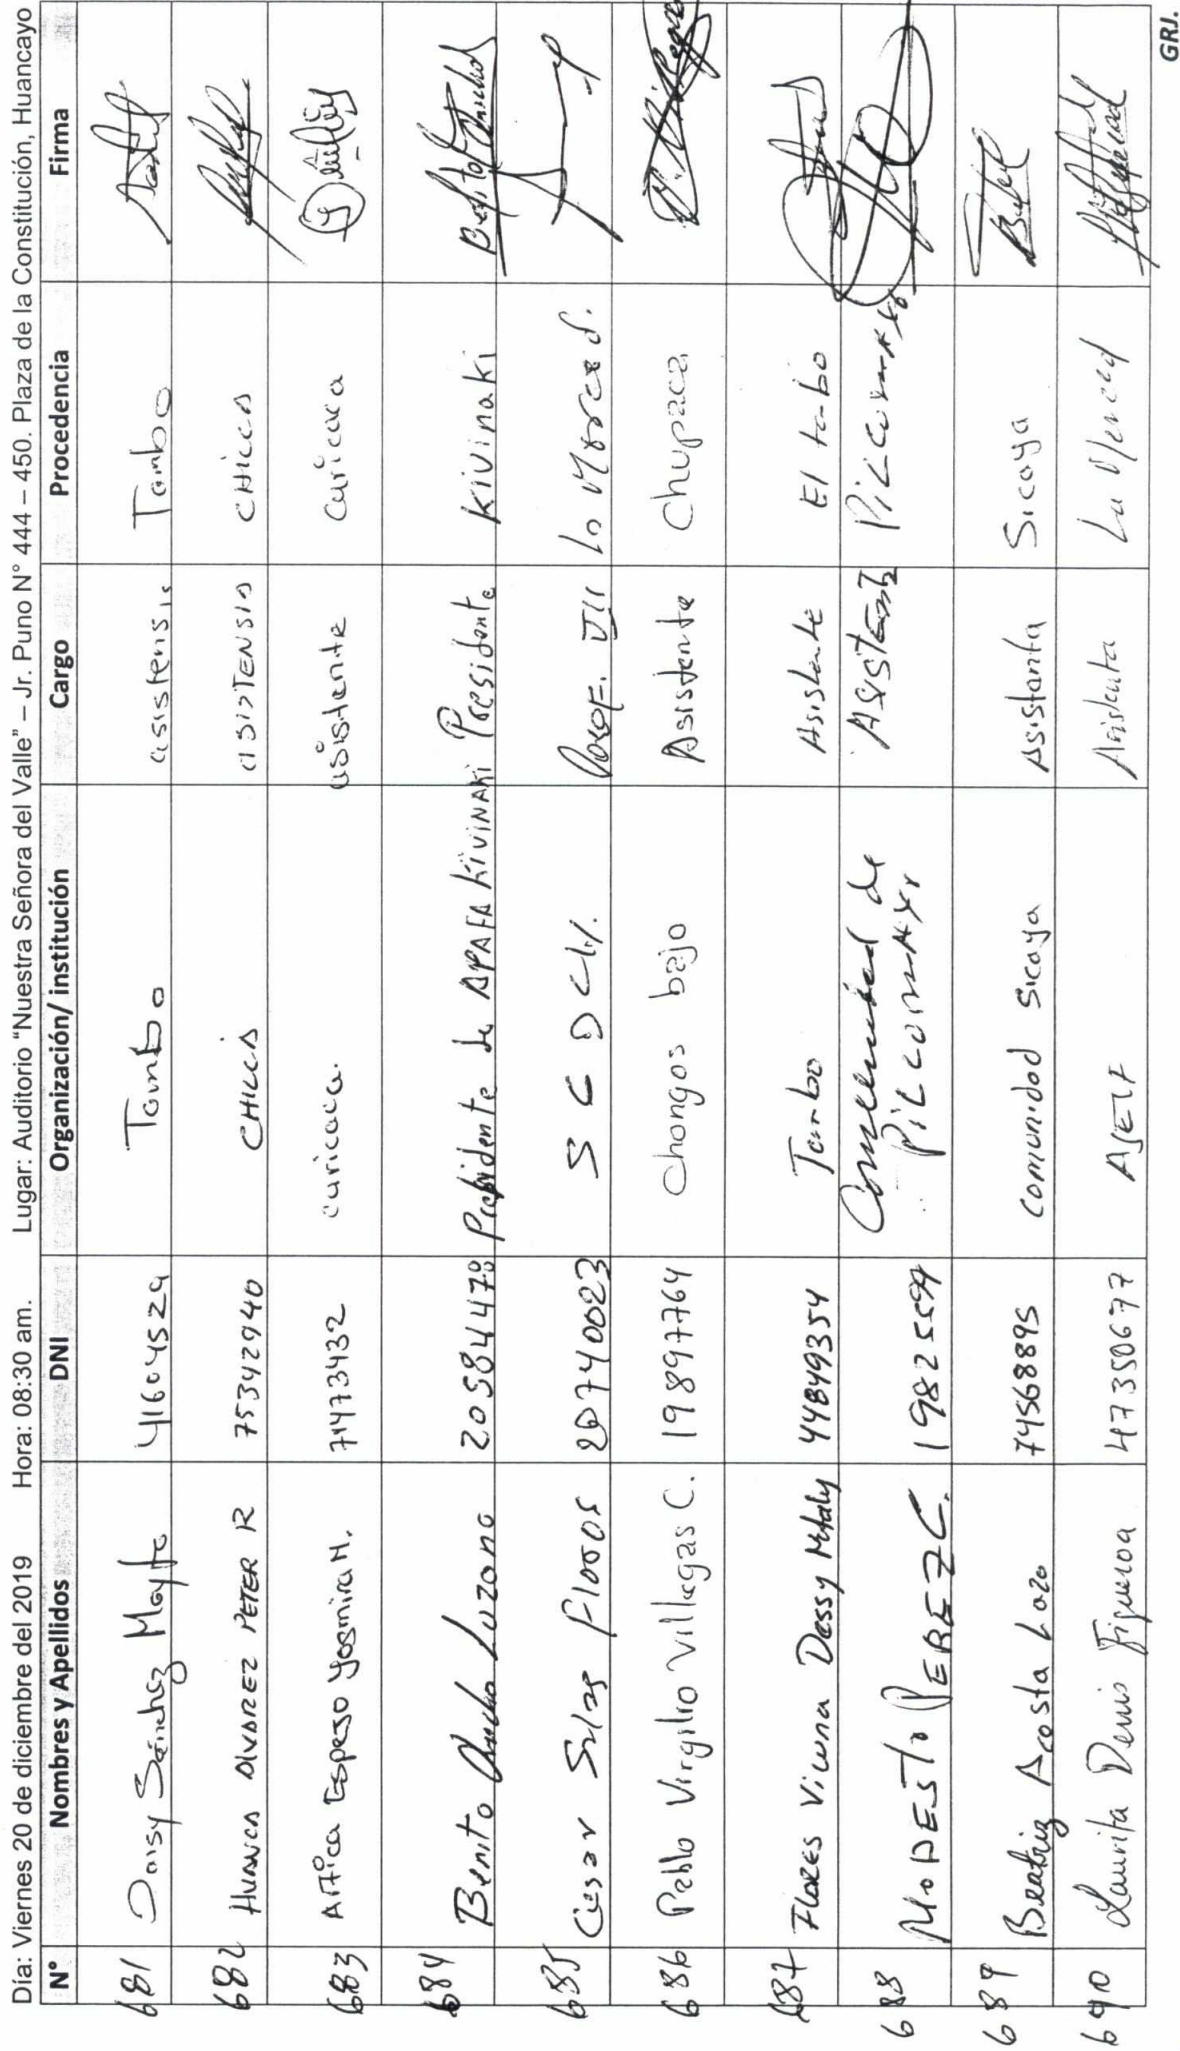 Día: Viernes 20 de diciembre del 2019 Hora: 08:30 am. Lugar: Auditorio "Nuestra Señora del Valle" – Jr. Puno N° 444 – 450. Plaza de la Constitución, Huancayo
N° Nombres y Apellidos DNI Organización/ institución Cargo Procedencia Firma
681 Daisy Sánchez Mayta 41604529 Tambo asistensia Tambo
682 HUAMAN ALVAREZ PETER R 75342940 CHILCA ASISTENSIA CHILCA
683 Artica Espejo Yasmira H. 71473432 curicaca. asistente curicaca
684 Benito Lozano 20584478 Presidente de APAFA KIVINAKI Presidente Kivinaki
685 Cesar Salas Flores 20740023 S C D Ch/. Prof. VII La Merced.
686 Pablo Virgilio Villegas C. 19897764 Chongos bajo Asistente Chupaca
687 FLORES Vicuna Dessy Mitaly 44849354 Tambo Asistente El tambo
688 MODESTO PEREZ C. Comunidad de PILCOMAYO ASISTENTE PILCOMAYO
689 Beatriz Acosta Lazo 74568895 comunidad Sicaya Asistenta Sicaya
690 Laurita Denis Figueroa 47350677 Asistenta La Merced
GRJ.